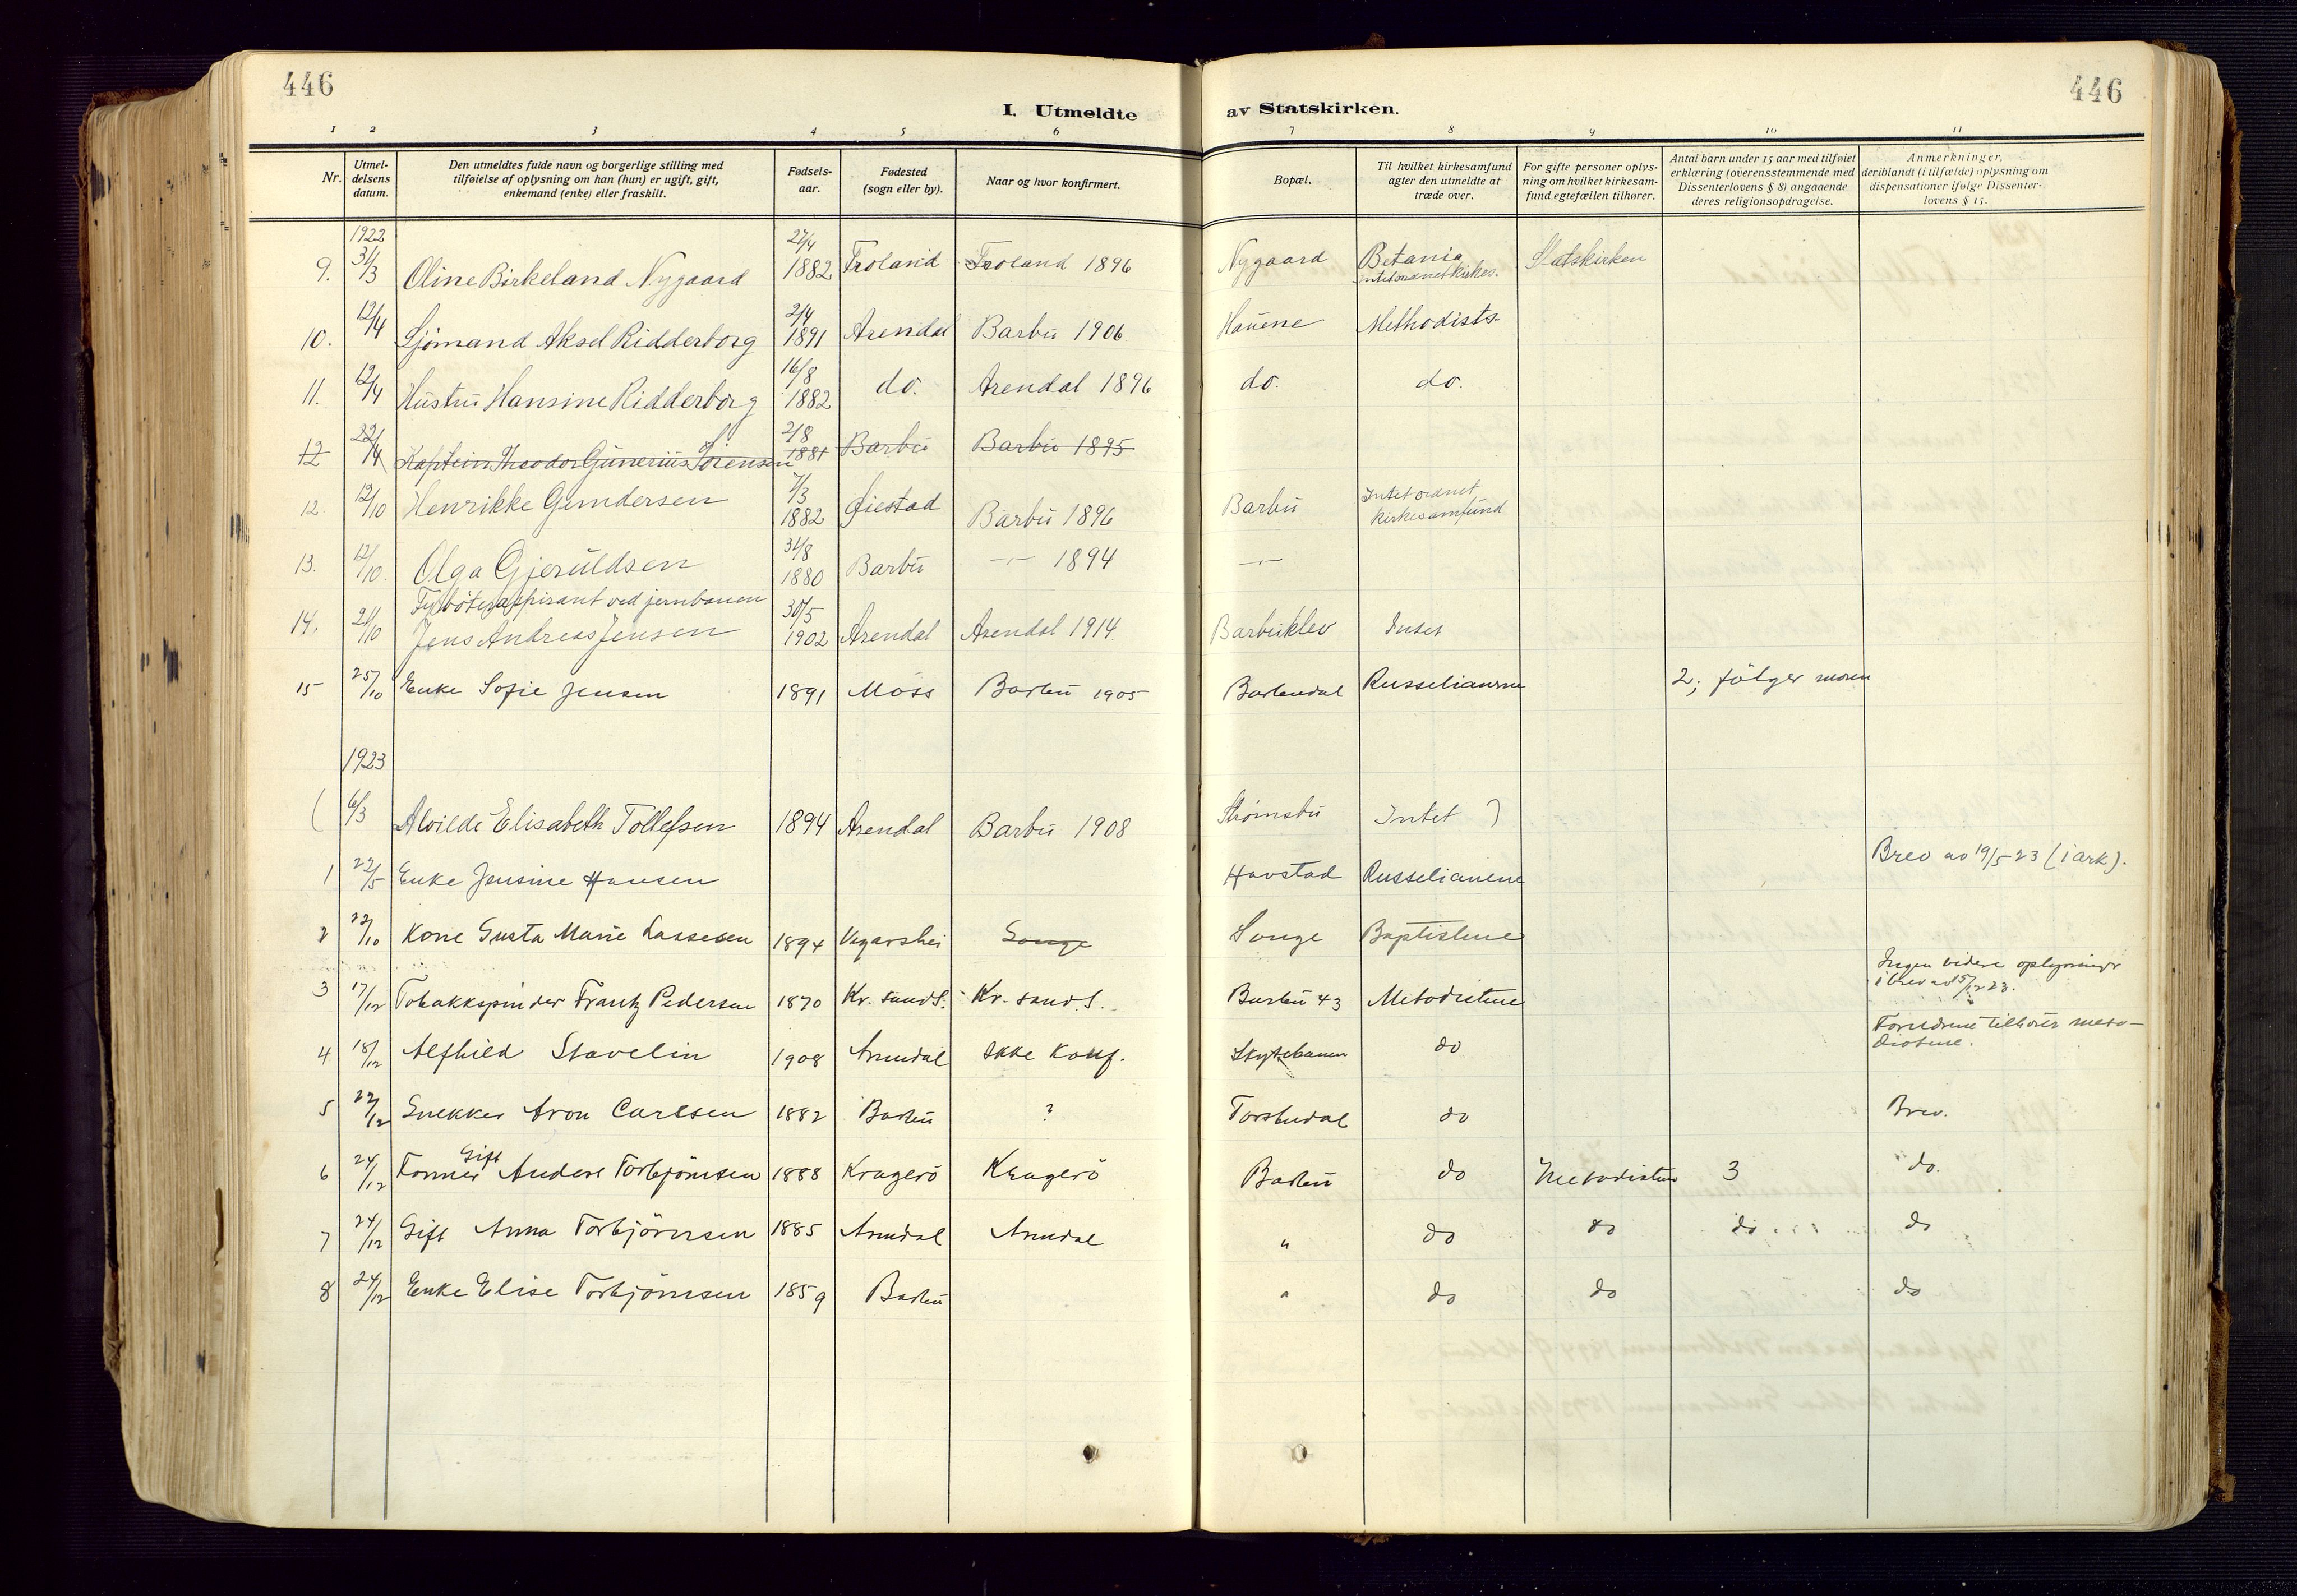 446
446
I. Utmeldte av Statskirken.
1 2 3 4 5 6 7 8 9 10 11
Nr.
Utmel-
delsens
datum.
Den utmeldtes fulde navn og borgerlige stilling med
tilføielse af oplysning om han (hun) er ugift, gift,
enkemand (enke) eller fraskilt.
Fødsels-
aar.
Fødested
(sogn eller by).
Naar og hvor konfirmert.
Bopæl.
Til hvilket kirkesamfund
agter den utmeldte at
træde over.
For gifte personer oplys-
ning om hvilket kirkesam-
fund egtefællen tilhører.
Antal barn under 15 aar med tilføiet
erklæring (overensstemmende med
Dissenterlovens § 8) angaaende
deres religionsopdragelse.
Anmerkninger,
deriblandt (i tilfælde) oplysning om
dispensationer ifølge Dissenter-
lovens § 15.
1922
9. 31/3 Oline Birkeland Nygaard 27/4 1882 Froland Froland 1896 Nygaard Betania intet ordnet kirkes. Statskirken
10. 12/4 Sjömand Aksel Ridderborg 2/4 1891 Arendal Barbu 1906 Hauene Methodists-
11. 12/4 Hustru Hansine Ridderborg 16/8 1882 do. Arendal 1896 do. do.
12 22/4 Kaptein Theodor Gunerius Sörensen 2/8 1881 Barbu Barbu 1895
12. 12/10 Henrikke Gundersen 7/3 1882 Øiestad Barbu 1896 Barbu Intet ordnet kirkesamfund
13. 12/10 Olga Gjeruldsen 31/8 1880 Barbu —"— 1894 —"—
Fyrbøteraspirant ved jernbanen
14. 21/10 Jens Andreas Jensen 30/5 1902 Arendal Arendal 1914. Barbuklev Intet
15 25/10 Enke Sofie Jensen 1891 Moss Barbu 1905 Barbudal Russelianerne 2; fölger moren
1923
( 6/3 Alvilde Elisabeth Tollefsen 1894 Arendal Barbu 1908 Strømsbu Intet )
1 22/5 Enke Jensine Hansen Havstad Russelianerne Brev av 19/5 23 (i ark).
2 22/10 Kone Gusta Marie Lassesen 1894 Vegarshei Songe Songe Baptistene
3 17/12 Tobakkspinder Frantz Pedersen 1870 Kr. sand S. Kr. sand S. Barbu 43 Metodistene Ingen videre oplysninger
i brev av 5/12 23.
4 18/12 Alfhild Stavelin 1908 Arendal Ikke konf. Skytebanen do Foreldrene tilhörer meto-
distene.
5 22/12 Snekker Aron Carlsen 1882 Barbu ? Torsbudal do Brev.
6 24/12 Former Gift Anders Torbjörnsen 1888 Kragerö Kragerö Barbu do Metodisten 3 do.
7 24/12 Gift Anna Torbjörnsen 1885 Arendal Arendal " do do do do
8 24/12 Enke Elise Torbjörnsen 1859 Barbu " do do do